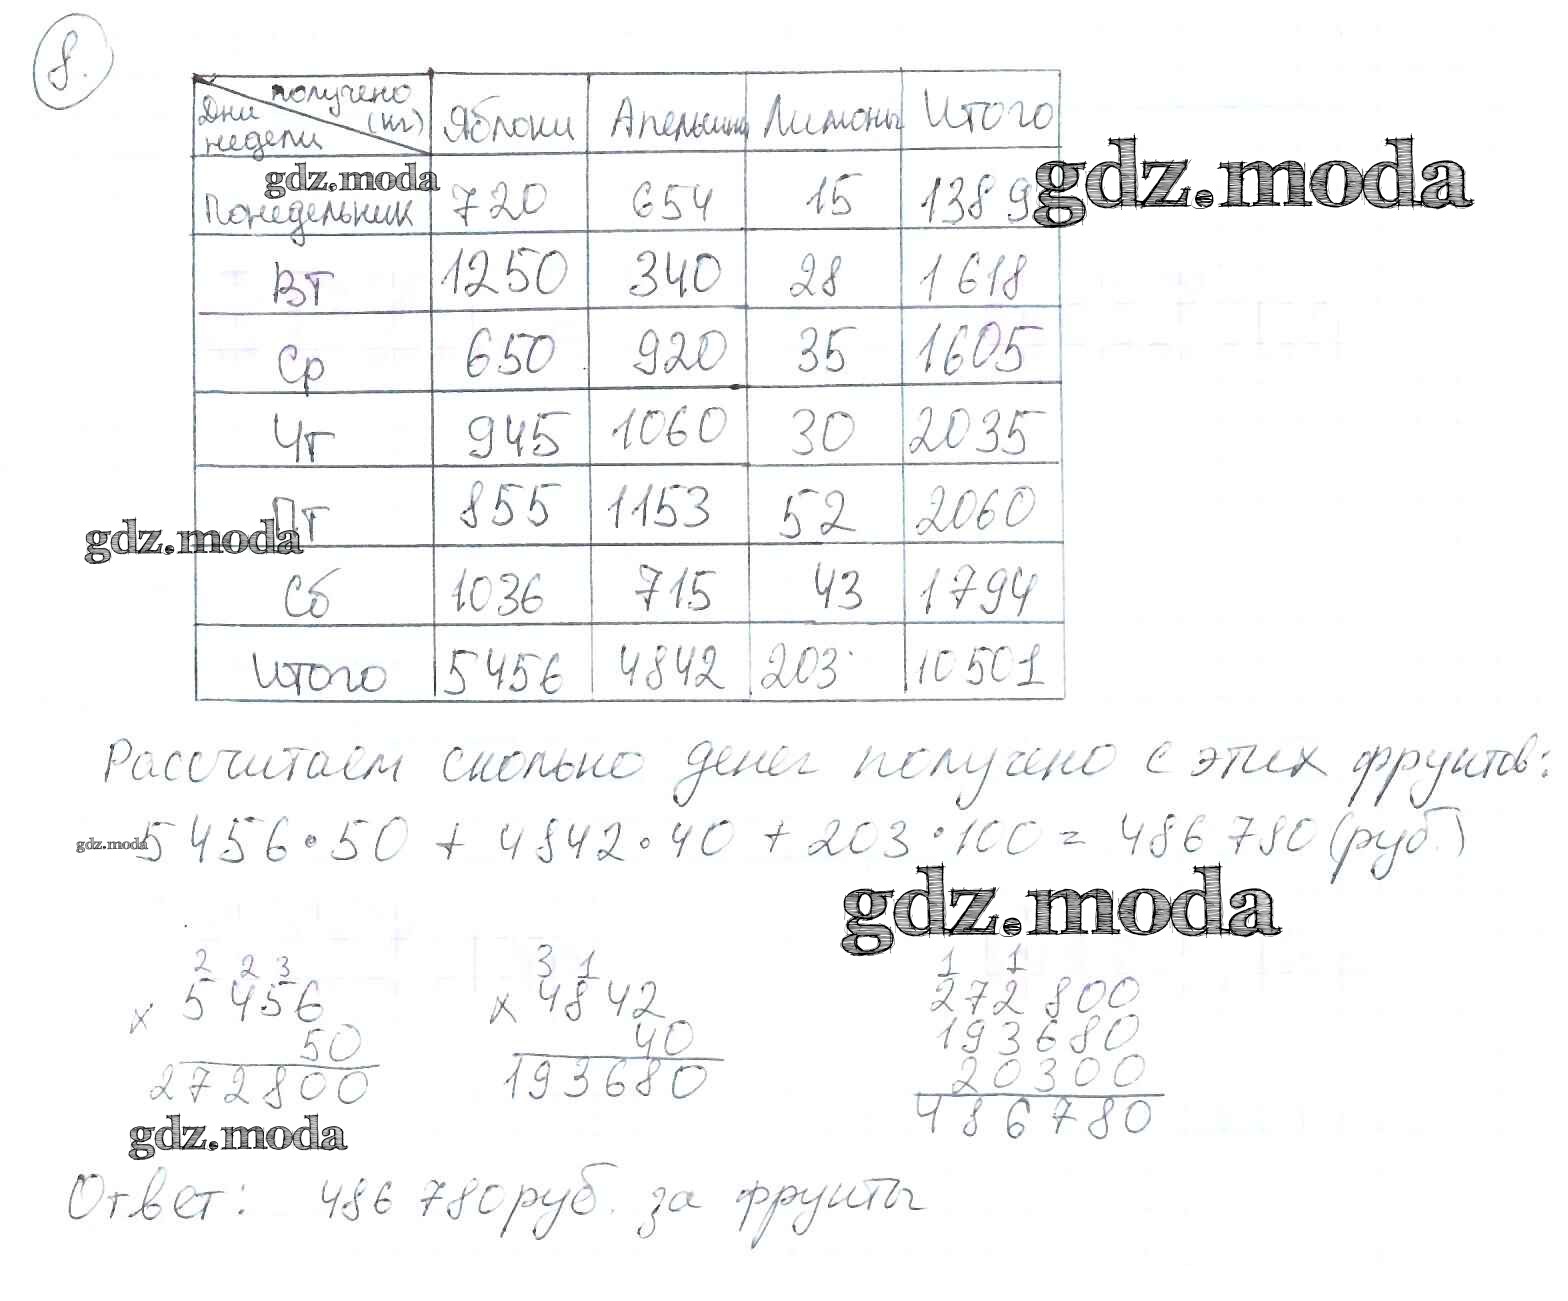 8.
получено (кг)
Дни недели
Яблоки Апельсины Лимоны Итого
gdz.moda
gdz.moda
Понедельник 720 654 15 1389
Вт 1250 340 28 1618
Ср 650 920 35 1605
Чт 945 1060 30 2035
Пт 855 1153 52 2060
gdz.moda
Сб 1036 715 43 1794
Итого 5456 4842 203 10501
Рассчитаем сколько денег получено с этих фруктов:
gdz.moda
5456·50 + 4842·40 + 203·100 = 486 780 (руб.)
gdz.moda
2 2 3
× 5456
50
272800
3 1
× 4842
40
193680
1 1
272 800
193680
20300
486780
gdz.moda
Ответ: 486 780 руб. за фрукты